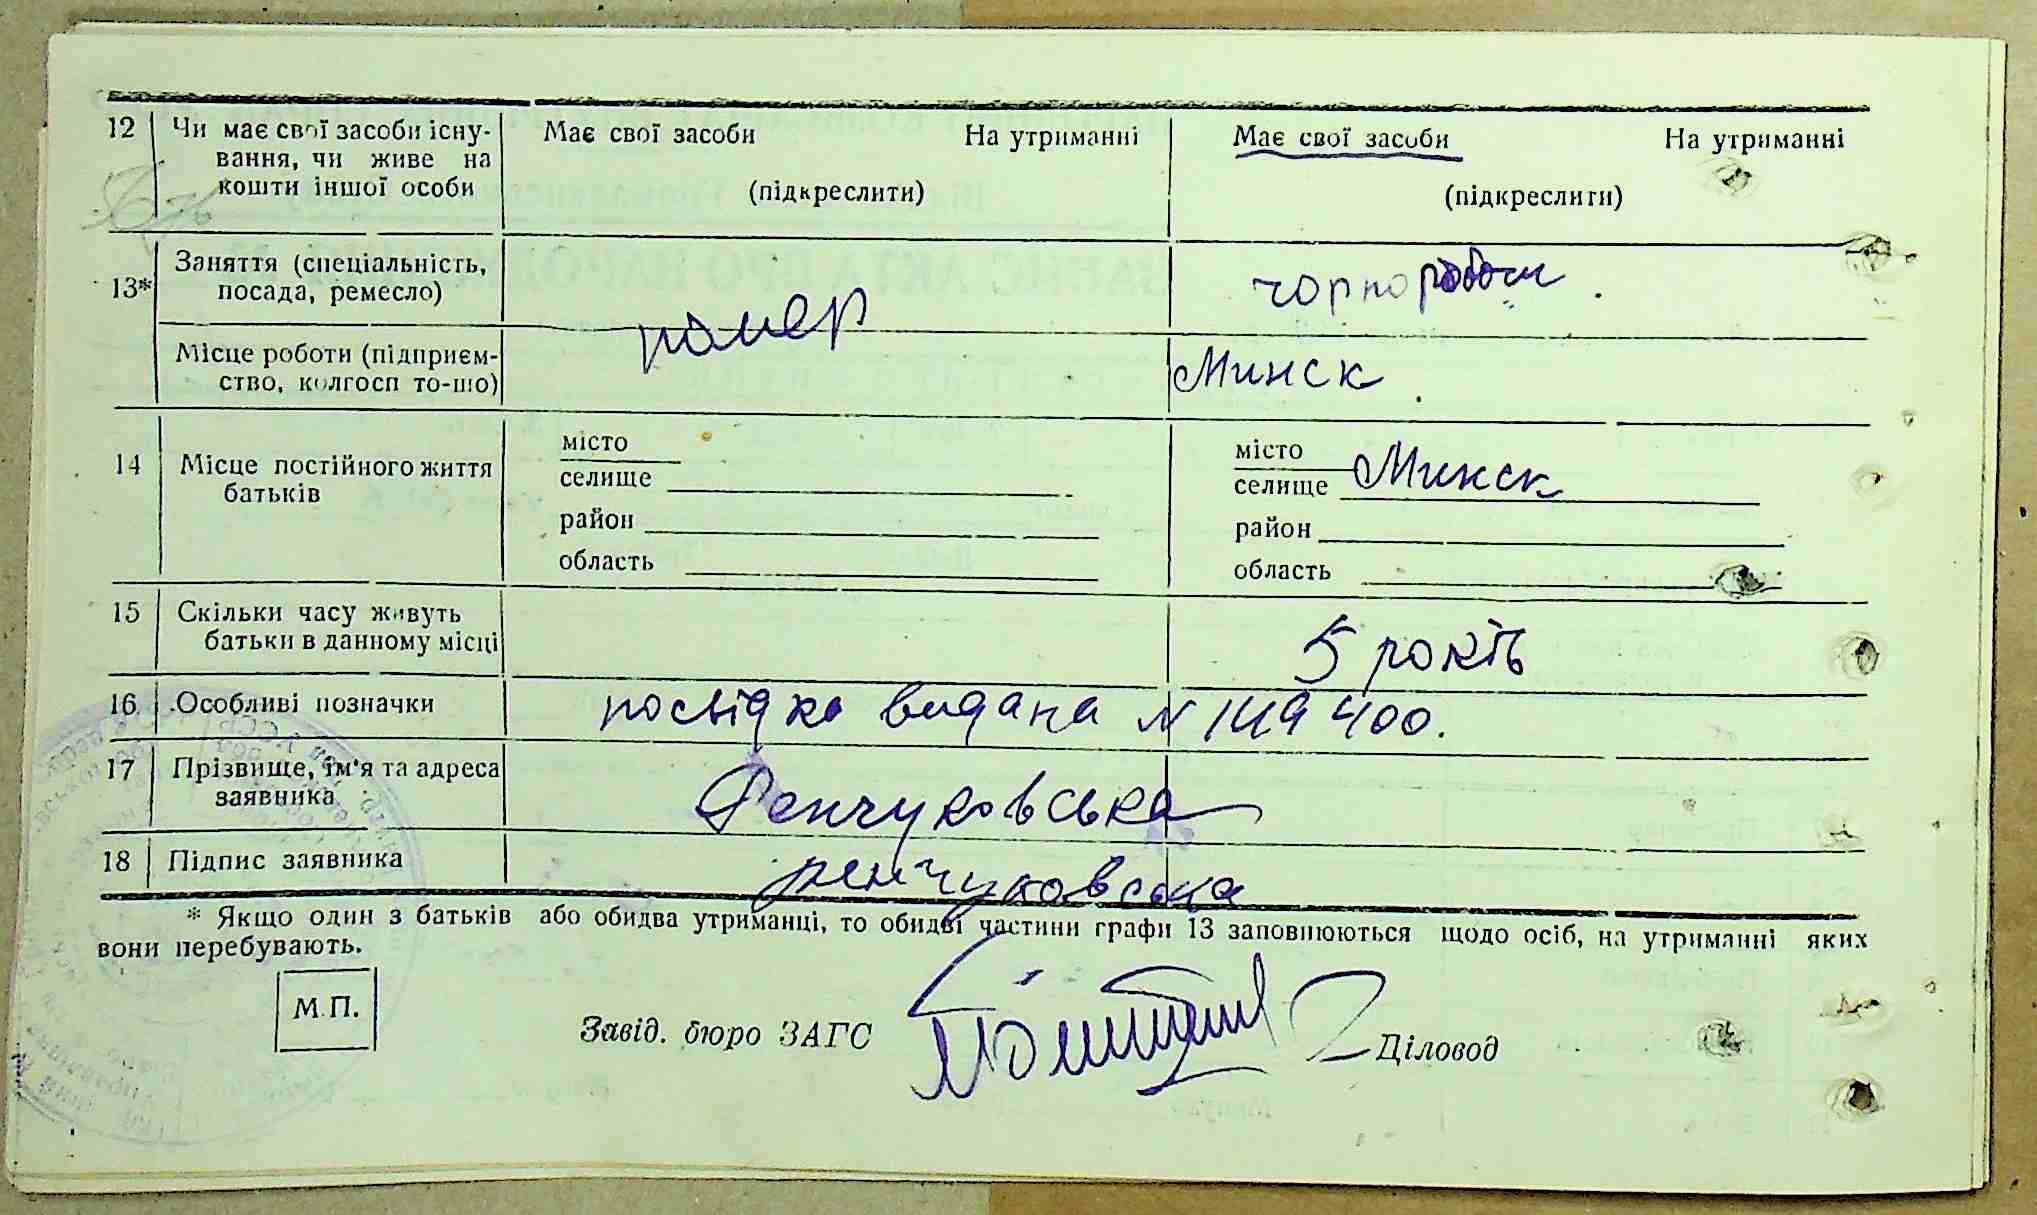 12 Чи має свої засоби існу- Має свої засоби На утриманні Має свої засоби На утриманні
вання, чи живе на
кошти іншої особи (підкреслити) (підкреслити)
13* Заняття (спеціальність,
посада, ремесло) помер чорнороботи.
Місце роботи (підприєм-
ство, колгосп то-що) Минск
14 Місце постійного життя
батьків
місто місто
селище селище Минск
район район
область область
15 Скільки часу живуть
батьки в данному місці 5 років
16 Особливі позначки посвідка видана N 149400.
17 Прізвище, ім'я та адреса
заявника Фенчуковська
18 Підпис заявника
* Якщо один з батьків або обидва утриманці, то обидві частини графи 13 заповнюються щодо осіб, на утриманні яких
вони перебувають.
М.П.
Завід. бюро ЗАГС Діловод